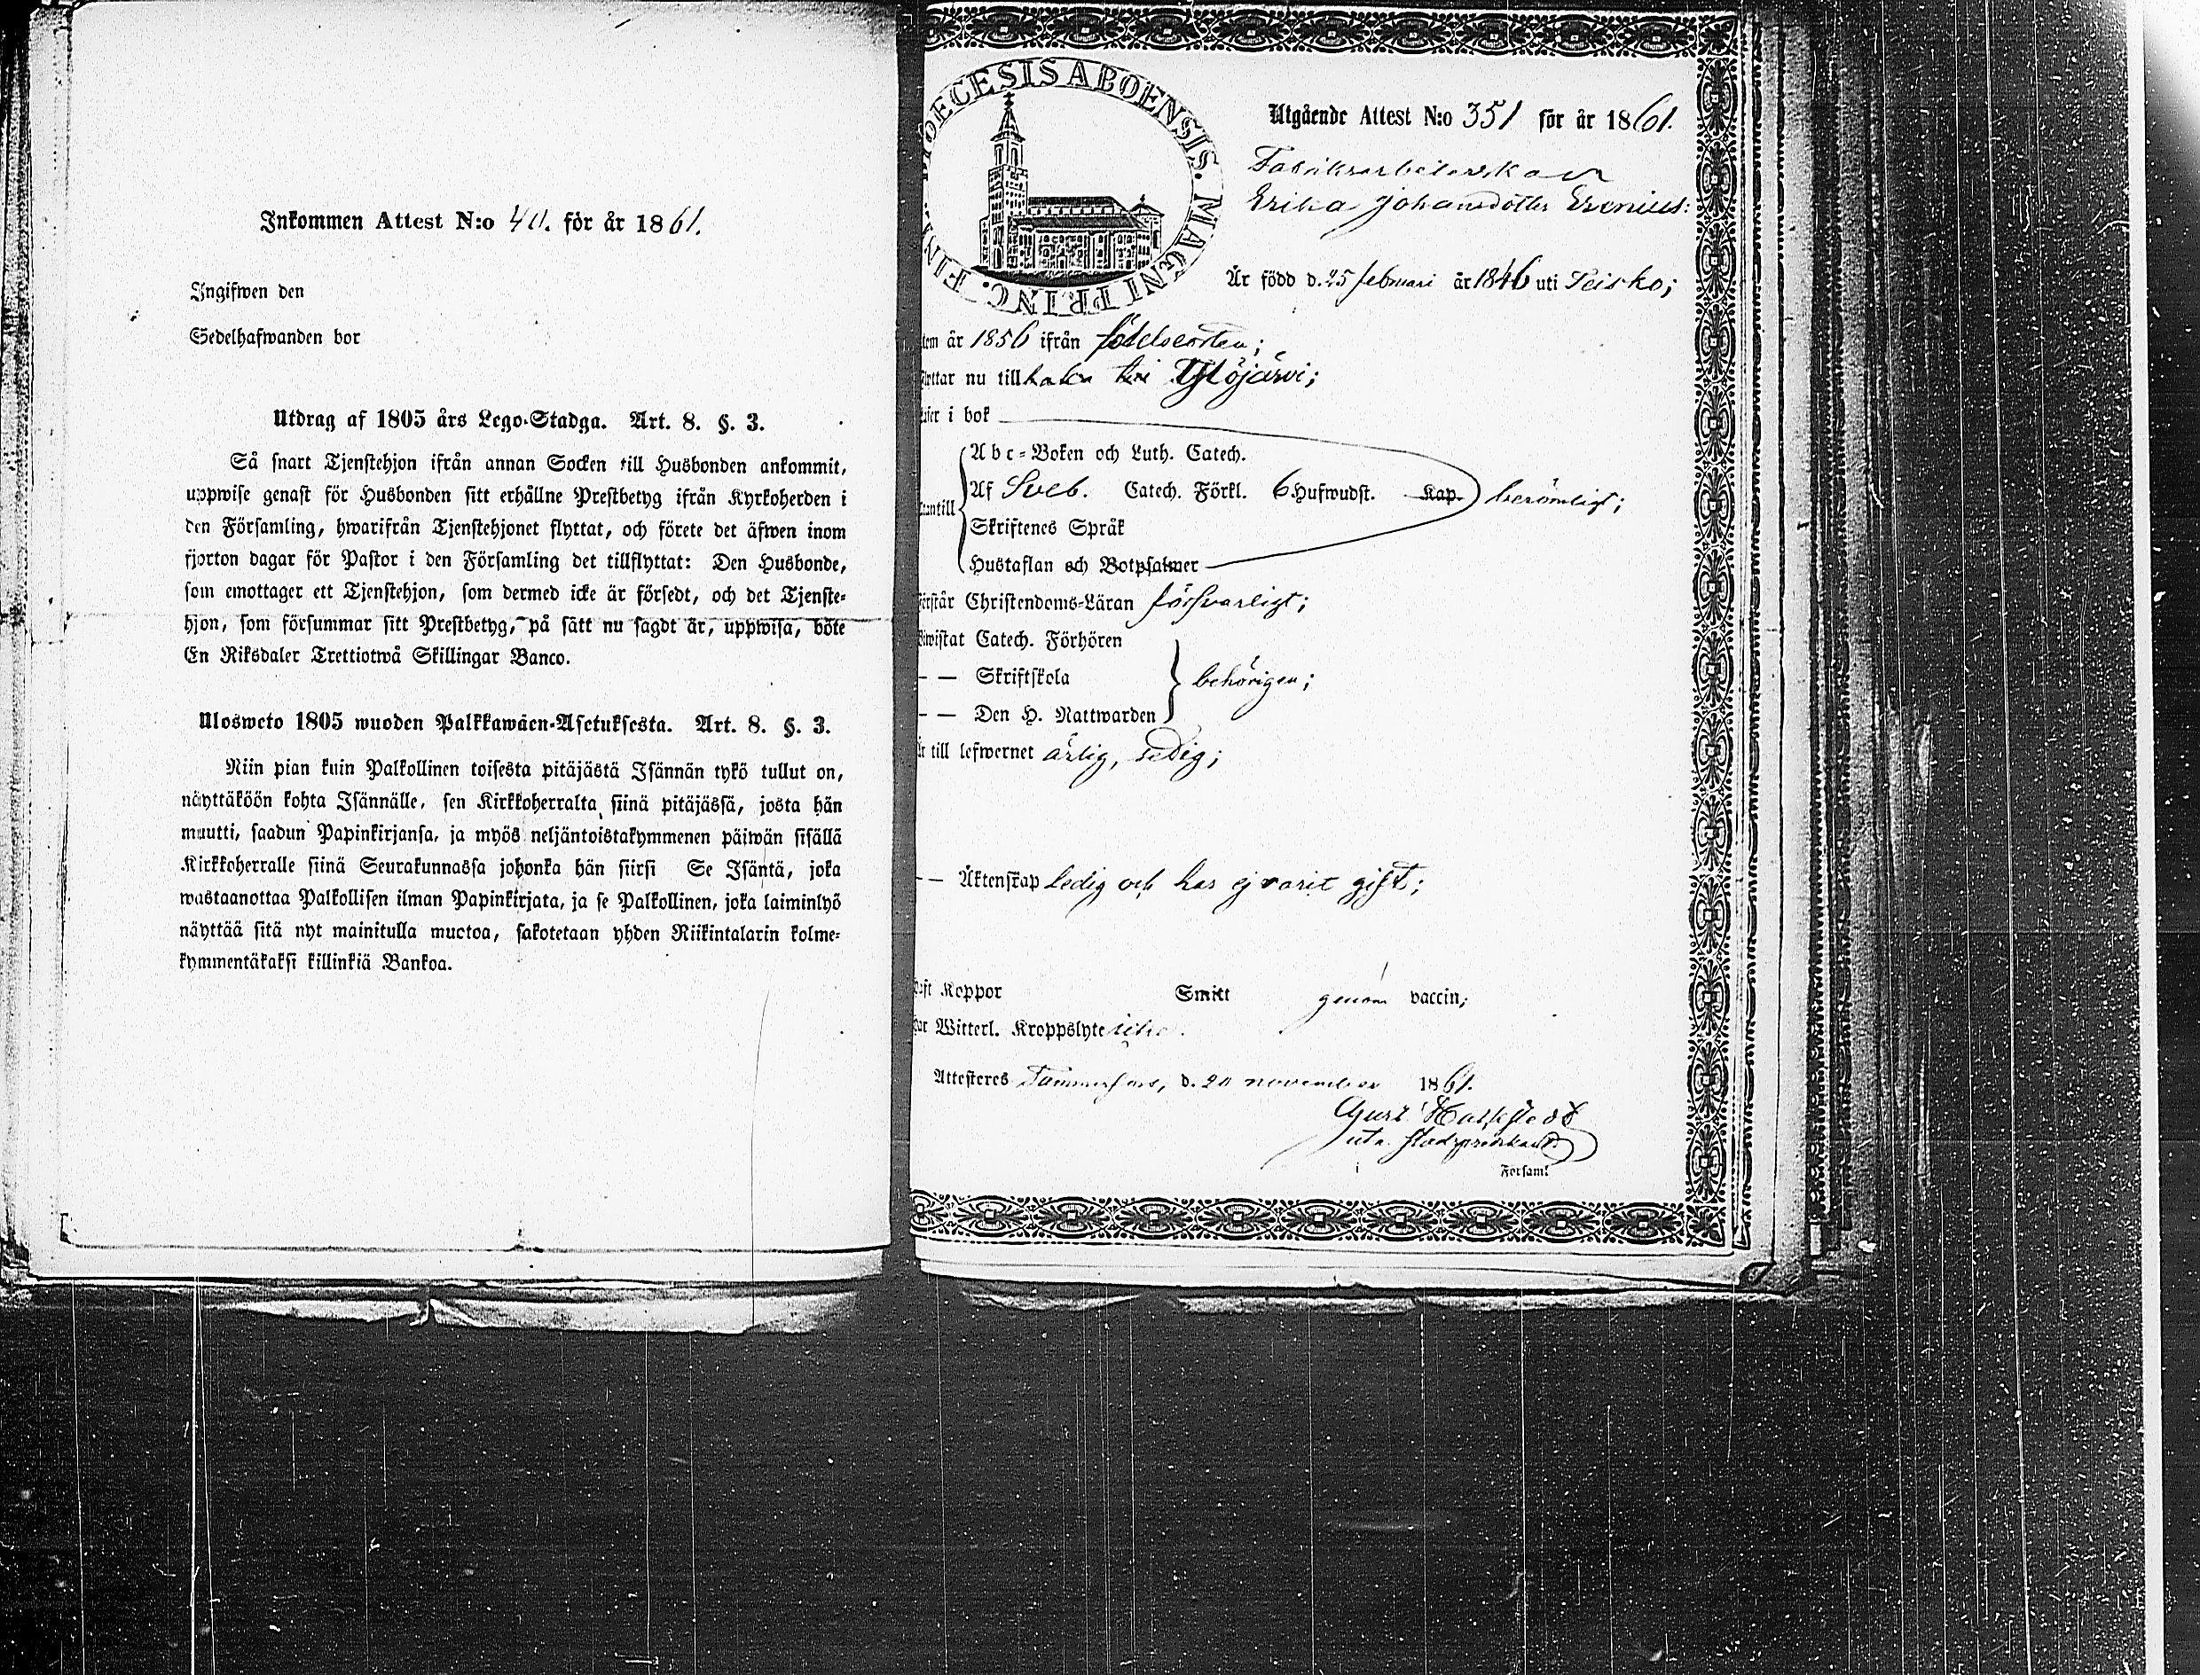 Inkommen Attest N:o 40. för år 1861.
Ingifwen den
Sedelhafwanden bor
Utdrag af 1805 års Lego-Stadga. Art. 8. §. 3.
Så snart Tjenstehjon ifrån annan Socken till Husbonden ankommit,
uppwise genast för Husbonden sitt erhållne Prestbetyg ifrån Kyrkoherden i
den Församling, hwarifrån Tjenstehjonet flyttat, och förete det äfwen inom
fjorton dagar för Pastor i den Församling det tillflyttat: Den Husbonde,
som emottager ett Tjenstehjon, som dermed icke är försedt, och det Tjenste-
hjon, som försummar sitt Prestbetyg, på sätt nu sagdt är, uppwisa, böte
En Riksdaler Trettiotwå Skillingar Banco.
Ulosweto 1805 wuoden Palkkawäen-Asetuksesta. Art. 8. §. 3.
Niin pian kuin Palkollinen toisesta pitäjästä Isännän tykö tullut on,
näyttäköön kohta Isännälle, sen Kirkkoherralta siinä pitäjässä, josta hän
muutti, saadun Papinkirjansa, ja myös neljäntoistakymmenen päiwän sisällä
Kirkkoherralle siinä Seurakunnassa johonka hän siirsi Se Isäntä, joka
wastaanottaa Palkollisen ilman Papinkirjata, ja se Palkollinen, joka laiminlyö
näyttää sitä nyt mainitulla muotoa, sakotetaan yhden Riikintalarin kolme-
kymmentäkaksi killinkiä Bankoa.
DIOECESIS ABOENSIS. MAGNI PRINC. FINL
Utgående Attest N:o 351 för år 1861.
Fabriksarbeterskan
Erika Johansdotter Grenius:
Är född d. 25 februari år 1846 uti Teisko;
kom år 1856 ifrån födelseorten;
flyttar nu till Ylöjärvi;
läser i bok
Abc-Boken och Luth. Catech.
utantill Af Sveb. Catech. Förkl. 6 Hufwudst. Kap. berömligt;
Skriftenes Språk
Hustaflan och Botpsalmer
förstår Christendoms-Läran försvarligt;
bewistat Catech. Förhören
— — Skriftskola behörigen;
— — Den H. Nattwarden
är till lefwernet ärlig, sedig;
— — Äktenskap ledig och har ej varit gift;
haft Koppor Smitt genom vaccin;
har Witterl. Kroppslyte icke.
Attesteres Tammerfors, d. 20 november 1861.
Gust.
stadspredikant
i Församl